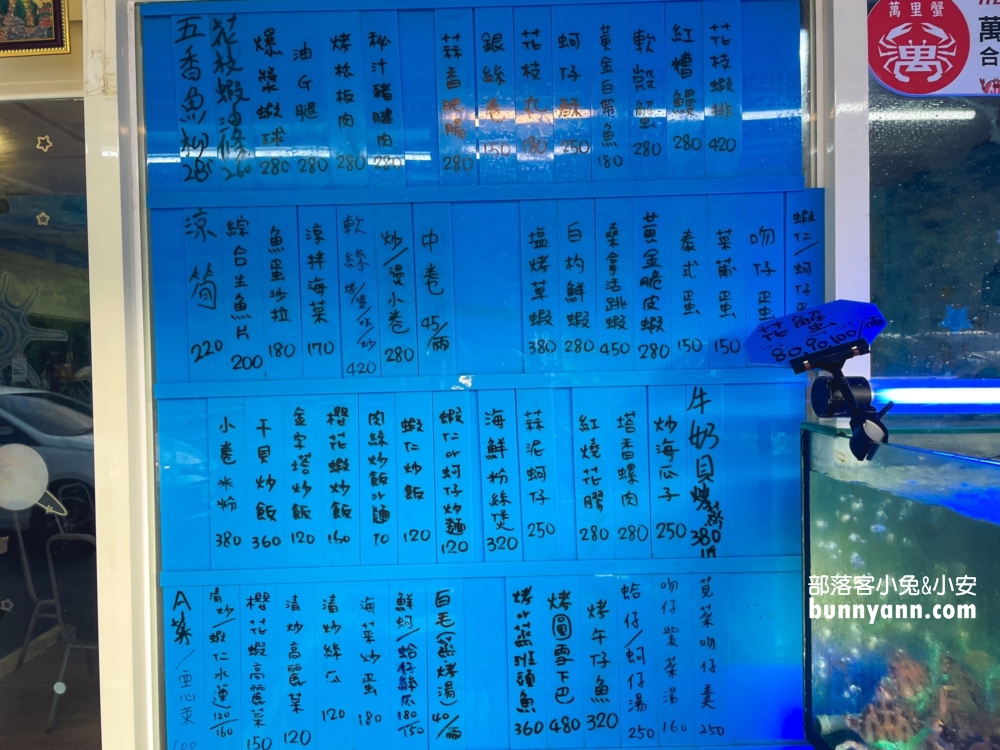 花枝蝦排 420
紅糟鰻 280
軟殼蟹 280
黃金白帶魚 180
蚵仔酥 250
花枝丸 180
銀絲卷 150
蒜香肥腸 280
秘汁豬腱肉 280
烤松板肉 280
油G腿 280
爆漿蝦球 280
花枝蝦油條 260
五香魚柳 280
蝦仁/蚵仔
吻仔蛋
菜脯蛋 150
泰式蛋 150
黃金脆皮蝦 280
桑拿活跳蝦 450
白灼鮮蝦 280
塩烤草蝦 380
中卷 45/兩
炒/燙小卷 280
軟絲 420
涼拌海菜 170
魚蛋沙拉 180
綜合生魚片 200
涼筍 220
牛奶貝 烤 380
炒海瓜子 250
塔香螺肉 280
紅燒花膠 280
蒜泥蚵仔 250
海鮮粉絲煲 320
蝦仁or蚵仔炒麵 120
蝦仁炒飯 120
肉絲炒飯or麵 70
櫻花蝦炒飯 150
金字塔炒飯 120
干貝炒飯 360
小卷米粉 380
莧菜吻仔羹 250
吻仔紫菜湯 160
蛤仔/蚵仔湯 250
烤午仔魚 320
烤圓雪下巴 480
烤 班頭魚 360
白毛(蒸烤湯) 40/兩
鮮蚵/蛤仔絲瓜 180/150
海菜炒蛋 180
清炒絲瓜 120
清炒高麗菜 120
櫻花蝦高麗菜 150
清炒/蝦仁水蓮 120/160
A菜/空心菜 100
花蟹 80,90,100/兩
萬里蟹
萬
萬
合
部落客小兔&小安
bunnyann.com